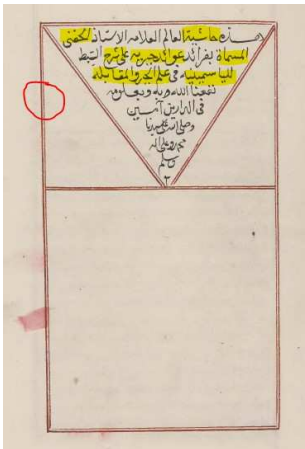 هذه حاشية العالم العلامه الاستاذ الحفني
المسماة بفرائد عوائد جبريه على شرح السبط
للياسمينيه في علم الجبر والمقابله
نفعنا الله به وبعلومه
في الدارين آمين
وصلى الله على سيدنا
محمد وعلى اله
وسلم
م